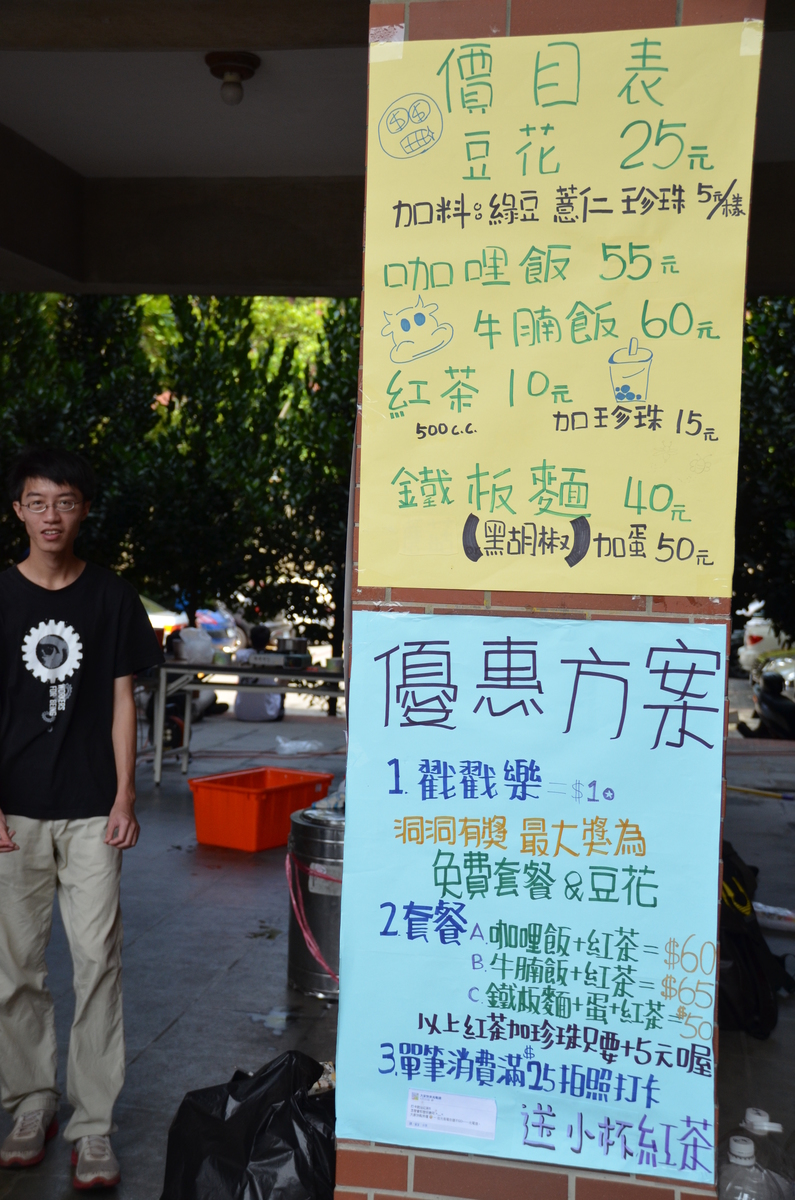 價目表
豆花 25元
加料：綠豆 薏仁 珍珠 5元/樣
咖哩飯 55元
牛腩飯 60元
紅茶 10元
500c.c. 加珍珠 15元
鐵板麵 40元
(黑胡椒) 加蛋 50元
優惠方案
1. 戳戳樂 = $10
洞洞有獎 最大獎為
免費套餐 & 豆花
2.套餐 A. 咖哩飯+紅茶 = $60
B. 牛腩飯+紅茶 = $65
C. 鐵板麵+蛋+紅茶 = $50
以上紅茶加珍珠只要+5元喔
3.單筆消費滿$25拍照打卡
送小杯紅茶